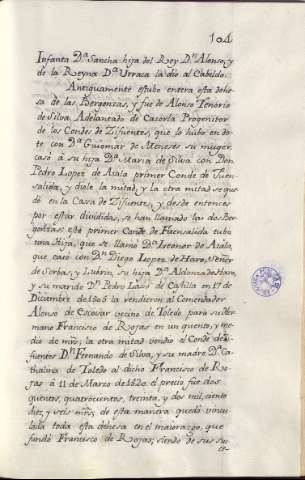 104
Infanta D.ª Sancha hija del Rey D.n Alonso, y
de la Reyna D.ª Urraca la dio al Cabildo.
Antiguamente estubo entera esta dehe
sa de las Bergonzas, y fue de Alonso Tenorio
de Silva Adelantado de Cazorla Progenitor
de los Condes de Zifuentes, que la hubo en do
te con D.ª Guiomar de Meneses su muger,
casó á su hija D.ª Maria de Silva con Don
Pedro Lopez de Aiala primer Conde de Fuen
salida, y diole la mitad, y la otra mitad se que
dó en la Casa de Zifuentes, y desde entonces
por estar divididas, se han llamado las dos Ber
gonzas: este primer Conde de Fuensalida tubo
una Hija, que se llamó D.ª Leonor de Aiala,
que casó con D.n Diego Lopez de Haro, Señor
de Sorbas, y Lubrin, su hija D.ª Aldonza de Haro,
y su marido D.n Pedro Laso de Castilla en 17 de
Diciembre de 1505 la vendieron al Comendador
Alonso de Escovar vecino de Toledo para su her
mano Francisco de Rojas en un quento, y me
dio de mrs; la otra mitad vendio el Conde de Zi
fuentes D.n Fernando de Silva, y su madre D.ª Ca
thalina de Toledo al dicho Francisco de Ro
jas á 11 de Marzo de 1520 el precio fue dos
quentos, quatrocientos, treinta, y dos mil, ciento
diez, y seis mrs, de esta manera quedó vincu
lada toda esta dehesa en el maiorazgo, que
fundó Francisco de Rojas; siendo de sus su
ce-